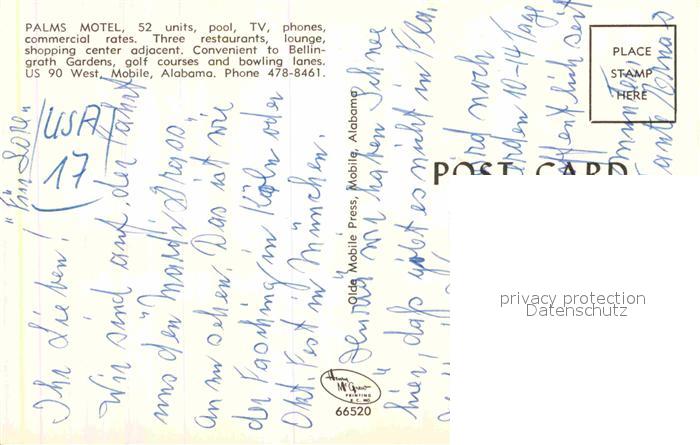 PALMS MOTEL, 52 units, pool, TV, phones,
commercial rates. Three restaurants, lounge,
shopping center adjacent. Convenient to Bellin-
grath Gardens, golf courses and bowling lanes.
US 90 West, Mobile, Alabama. Phone 478-8461.
PLACE
STAMP
HERE
POST CARD
Olde Mobile Press, Mobile, Alabama
Henry
McGrew
PRINTING
K.C. MO.
66520
privacy protection
Datenschutz
USA
17
"Für Lore"
Ihr Lieben!
Wir sind auf der Fahrt
uns den "Mardi Grass"
an zu sehen. Das ist wie
der Fasching in Köln oder
Okt. Fest in München.
wir haben Schnee
hier, daß gibt es nicht in Fla.
noch
10-14 Tage
seit
Tante